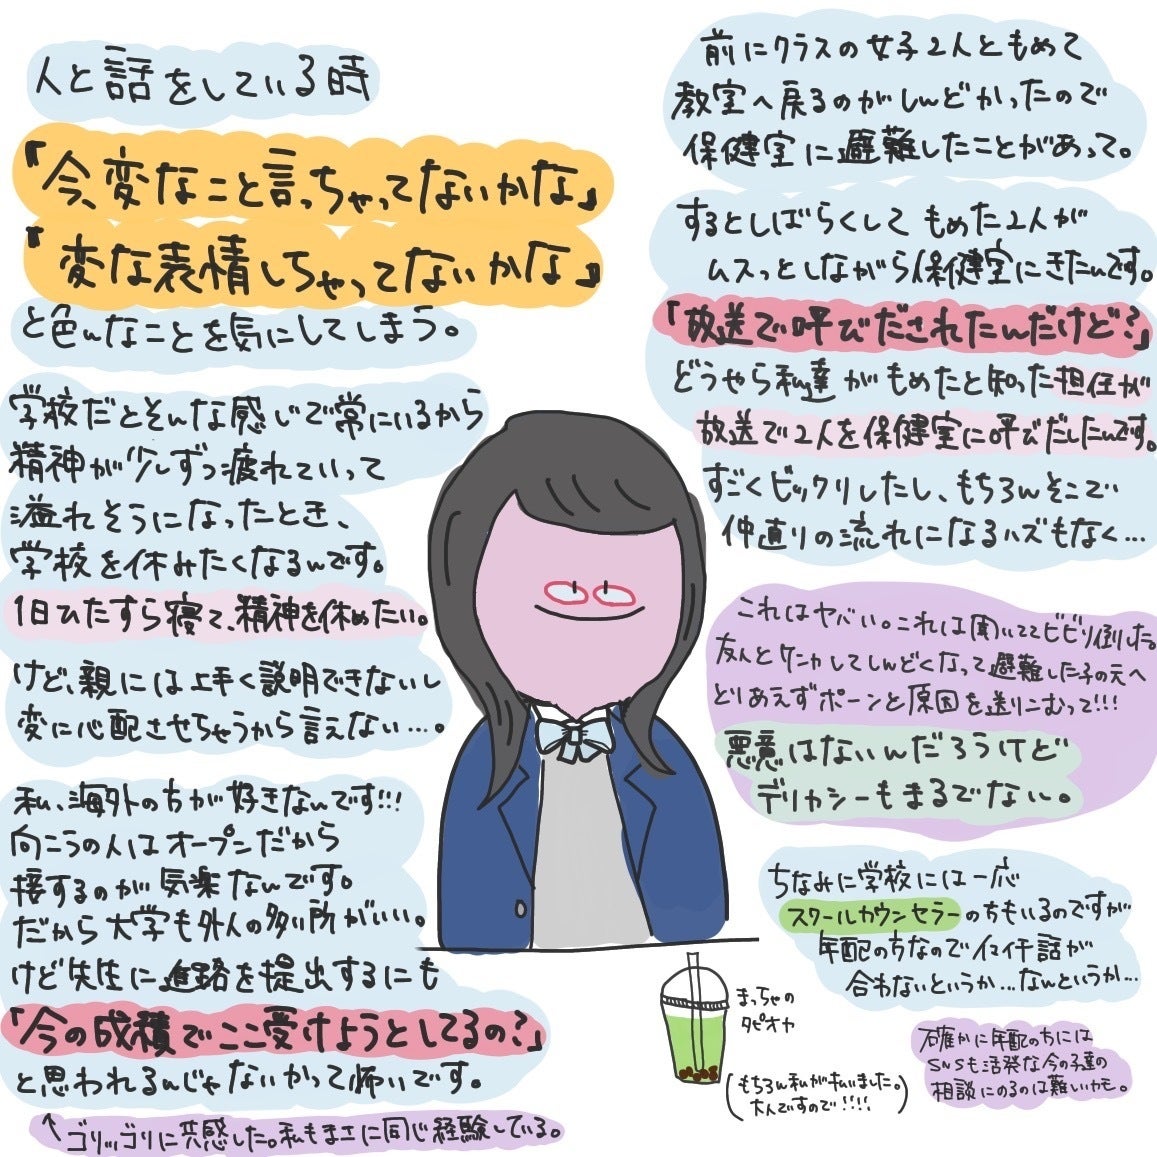 人と話をしている時
「今、変なこと言っちゃってないかな」
「変な表情しちゃってないかな」
と色んなことを気にしてしまう。
学校だとそんな感じで常にいるから
精神が少しずつ疲れていって
溢れそうになったとき、
学校を休みたくなるんです。
1日ひたすら寝て、精神を休めたい。
けど、親には上手く説明できないし
変に心配させちゃうから言えない…。
私、海外の方が好きなんです!!!
向こうの人はオープンだから
接するのが気楽なんです。
だから大学も外人の多い所がいい。
けど先生に進路を提出するにも
「今の成績でここ受けようとしてるの?」
と思われるんじゃないかって怖いです。
↑ゴリッゴリに共感した。私もまさに同じ経験している。
前にクラスの女子2人ともめて
教室へ戻るのがしんどかったので
保健室に避難したことがあって。
するとしばらくして もめた2人が
ムスっとしながら保健室にきたんです。
「放送で呼びだされたんだけど?」
どうやら私達がもめたと知った担任が
放送で2人を保健室に呼びだしたんです。
すごくビックリしたし、もちろんそこで
仲直りの流れになるハズもなく…
これはヤバい。これは聞いててビビり倒した。
友人とケンカしてしんどくなって避難した子の元へ
とりあえずポーンと原因を送りこむって!!!
悪意はないんだろうけど
デリカシーもまるでない。
ちなみに学校には一応
スクールカウンセラーの方もいるのですが
年配の方なのでイマイチ話が
合わないというか…なんというか…
的確かに年配の方には
SNSも活発な今の子達の
相談にのるのは難しいかも。
まっちゃの
タピオカ
(もちろん私が払いました。
大人ですので!!!!)